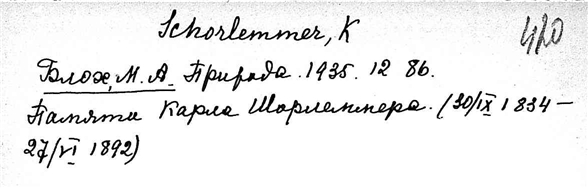 Schorlemmer, K
420
Блох, М. А. Природа. 1935. 12 86.
Памяти Карла Шорлеммера. (30/IX 1834 —
27/VI 1892)